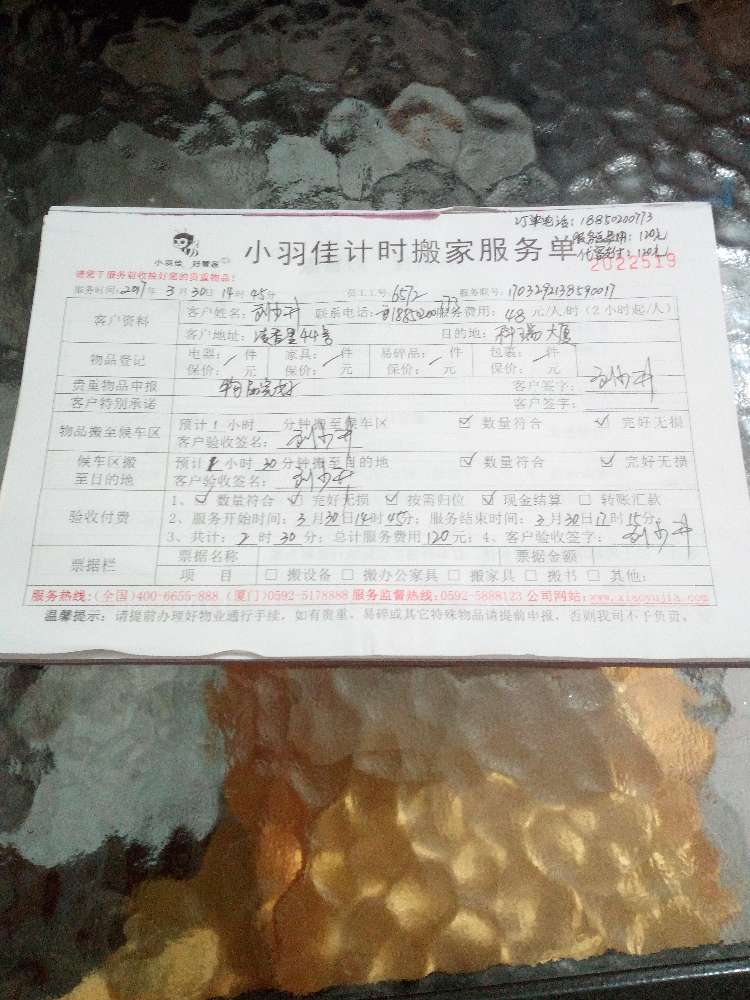 订单电话：18850200773
服务总费用：120元
小羽佳 好管家
小羽佳计时搬家服务单
2022519
请您于服务前收捡好您的贵重物品！
服务时间：2017年 3月30日14时45分 员工工号：6572 服务账号：1703292138590017
客户资料
客户姓名： 联系电话：18850200773 服务费用：48 元/人/时（2小时起/人）
客户地址：凌香里44号 目的地：科瑞大厦
物品登记
电器： 件 家具： 件 易碎品： 件 包装： 件
保价： 元 保价： 元 保价： 元 保价： 元
贵重物品申报 物品完好 客户签字：
客户特别承诺 客户签字：
物品搬至候车区
预计1小时 分钟搬至候车区 ☑ 数量符合 ☑ 完好无损
客户验收签名：
候车区搬至目的地
预计 小时30分钟搬至目的地 ☑ 数量符合 ☑ 完好无损
客户验收签名：
验收付费
1、☑ 数量符合 ☑ 完好无损 ☑ 按需归位 ☑ 现金结算 □ 转账汇款
2、服务开始时间：3月30日14时45分；服务结束时间：3月30日17时15分；
3、共计：2时30分；总计服务费用120元；4、客户验收签字：
票据栏
票据名称 票据金额
项 目 □ 搬设备 □ 搬办公家具 □ 搬家具 □ 搬书 □ 其他：
服务热线：（全国）400-6655-888 （厦门）0592-5178888 服务监督热线：0592-5888123 公司网站：www.xiaoyujia.com
温馨提示：请提前办理好物业通行手续，如有贵重、易碎或其它特殊物品请提前申报，否则我司不予负责。